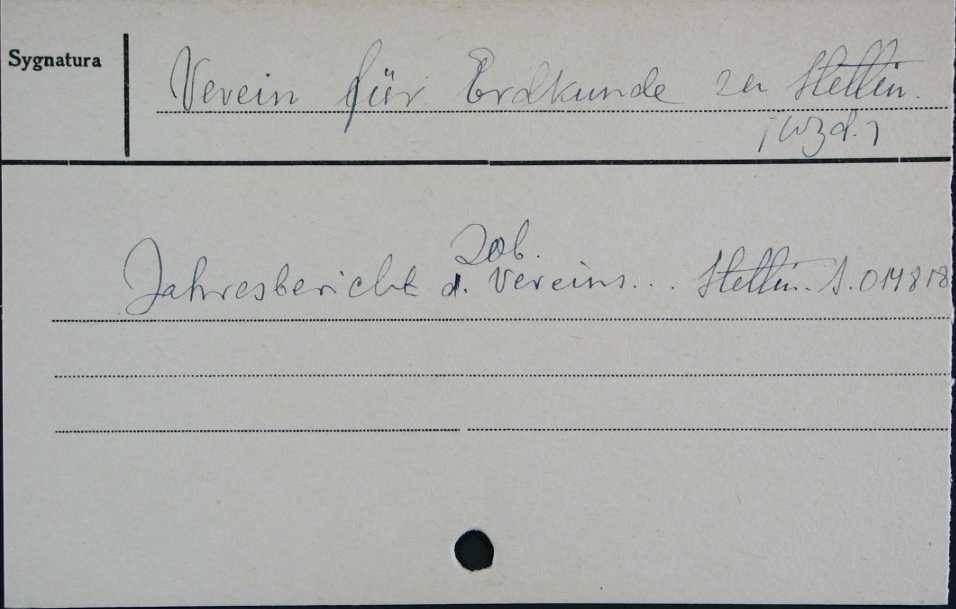 Sygnatura
Verein für Erdkunde zu Stettin.
/wyd./
Zob.
Jahresbericht d. Vereins... Stettin. S. 014818